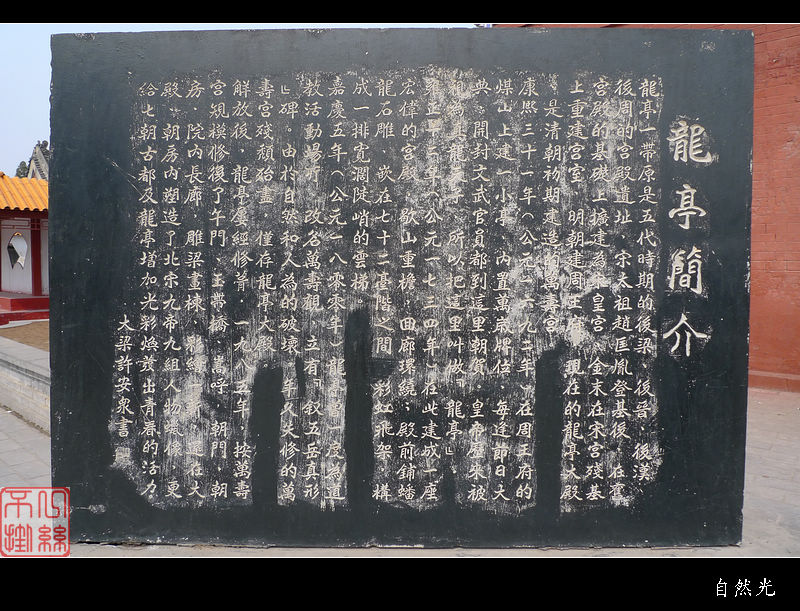 龍亭簡介
龍亭一帶原是五代時期的後梁、後晉、後漢、
後周的宮殿遺址。宋太祖趙匡胤登基後，在舊
宮殿的基礎上擴建為宋皇宮。金末在宋宮殘基
上重建宮室，明朝建周王府。現在的龍亭大殿
是清朝初期建造的萬壽宮。
康熙三十一年（公元一六九二年）在周王府的
煤山上建一小亭，內置萬歲牌位。每逢節日大
典，開封文武官員都到這里朝賀。皇帝歷來被
視為真龍天子，所以把這里叫做「龍亭」。
雍正十二年（公元一七三四年）在此建成一座
宏偉的宮殿，歇山重檐，回廊環繞；殿前鋪蟠
龍石雕，嵌在七十二臺階之間，彩虹飛架，構
成一排寬濶陡峭的雲梯。
嘉慶五年（公元一八零零年）龍亭曾一度為道
教活動場所，改名萬壽觀，立有「叙五岳真形
」碑。由於自然和人為的破壞，年久失修的萬
壽宮殘頹殆盡，僅存龍亭大殿。
解放後，龍亭屢經修葺。一九八五年，按萬壽
宮規模修復了午門、玉帶橋、嵩呼、朝門、朝
房，院內長廊，雕梁畫棟，彩繪一新，在大
殿、朝房內塑造了北宋九帝九組人物羣像，更
給七朝古都及龍亭增加光彩煥發出青春的活力
大梁許安泉書
自然光